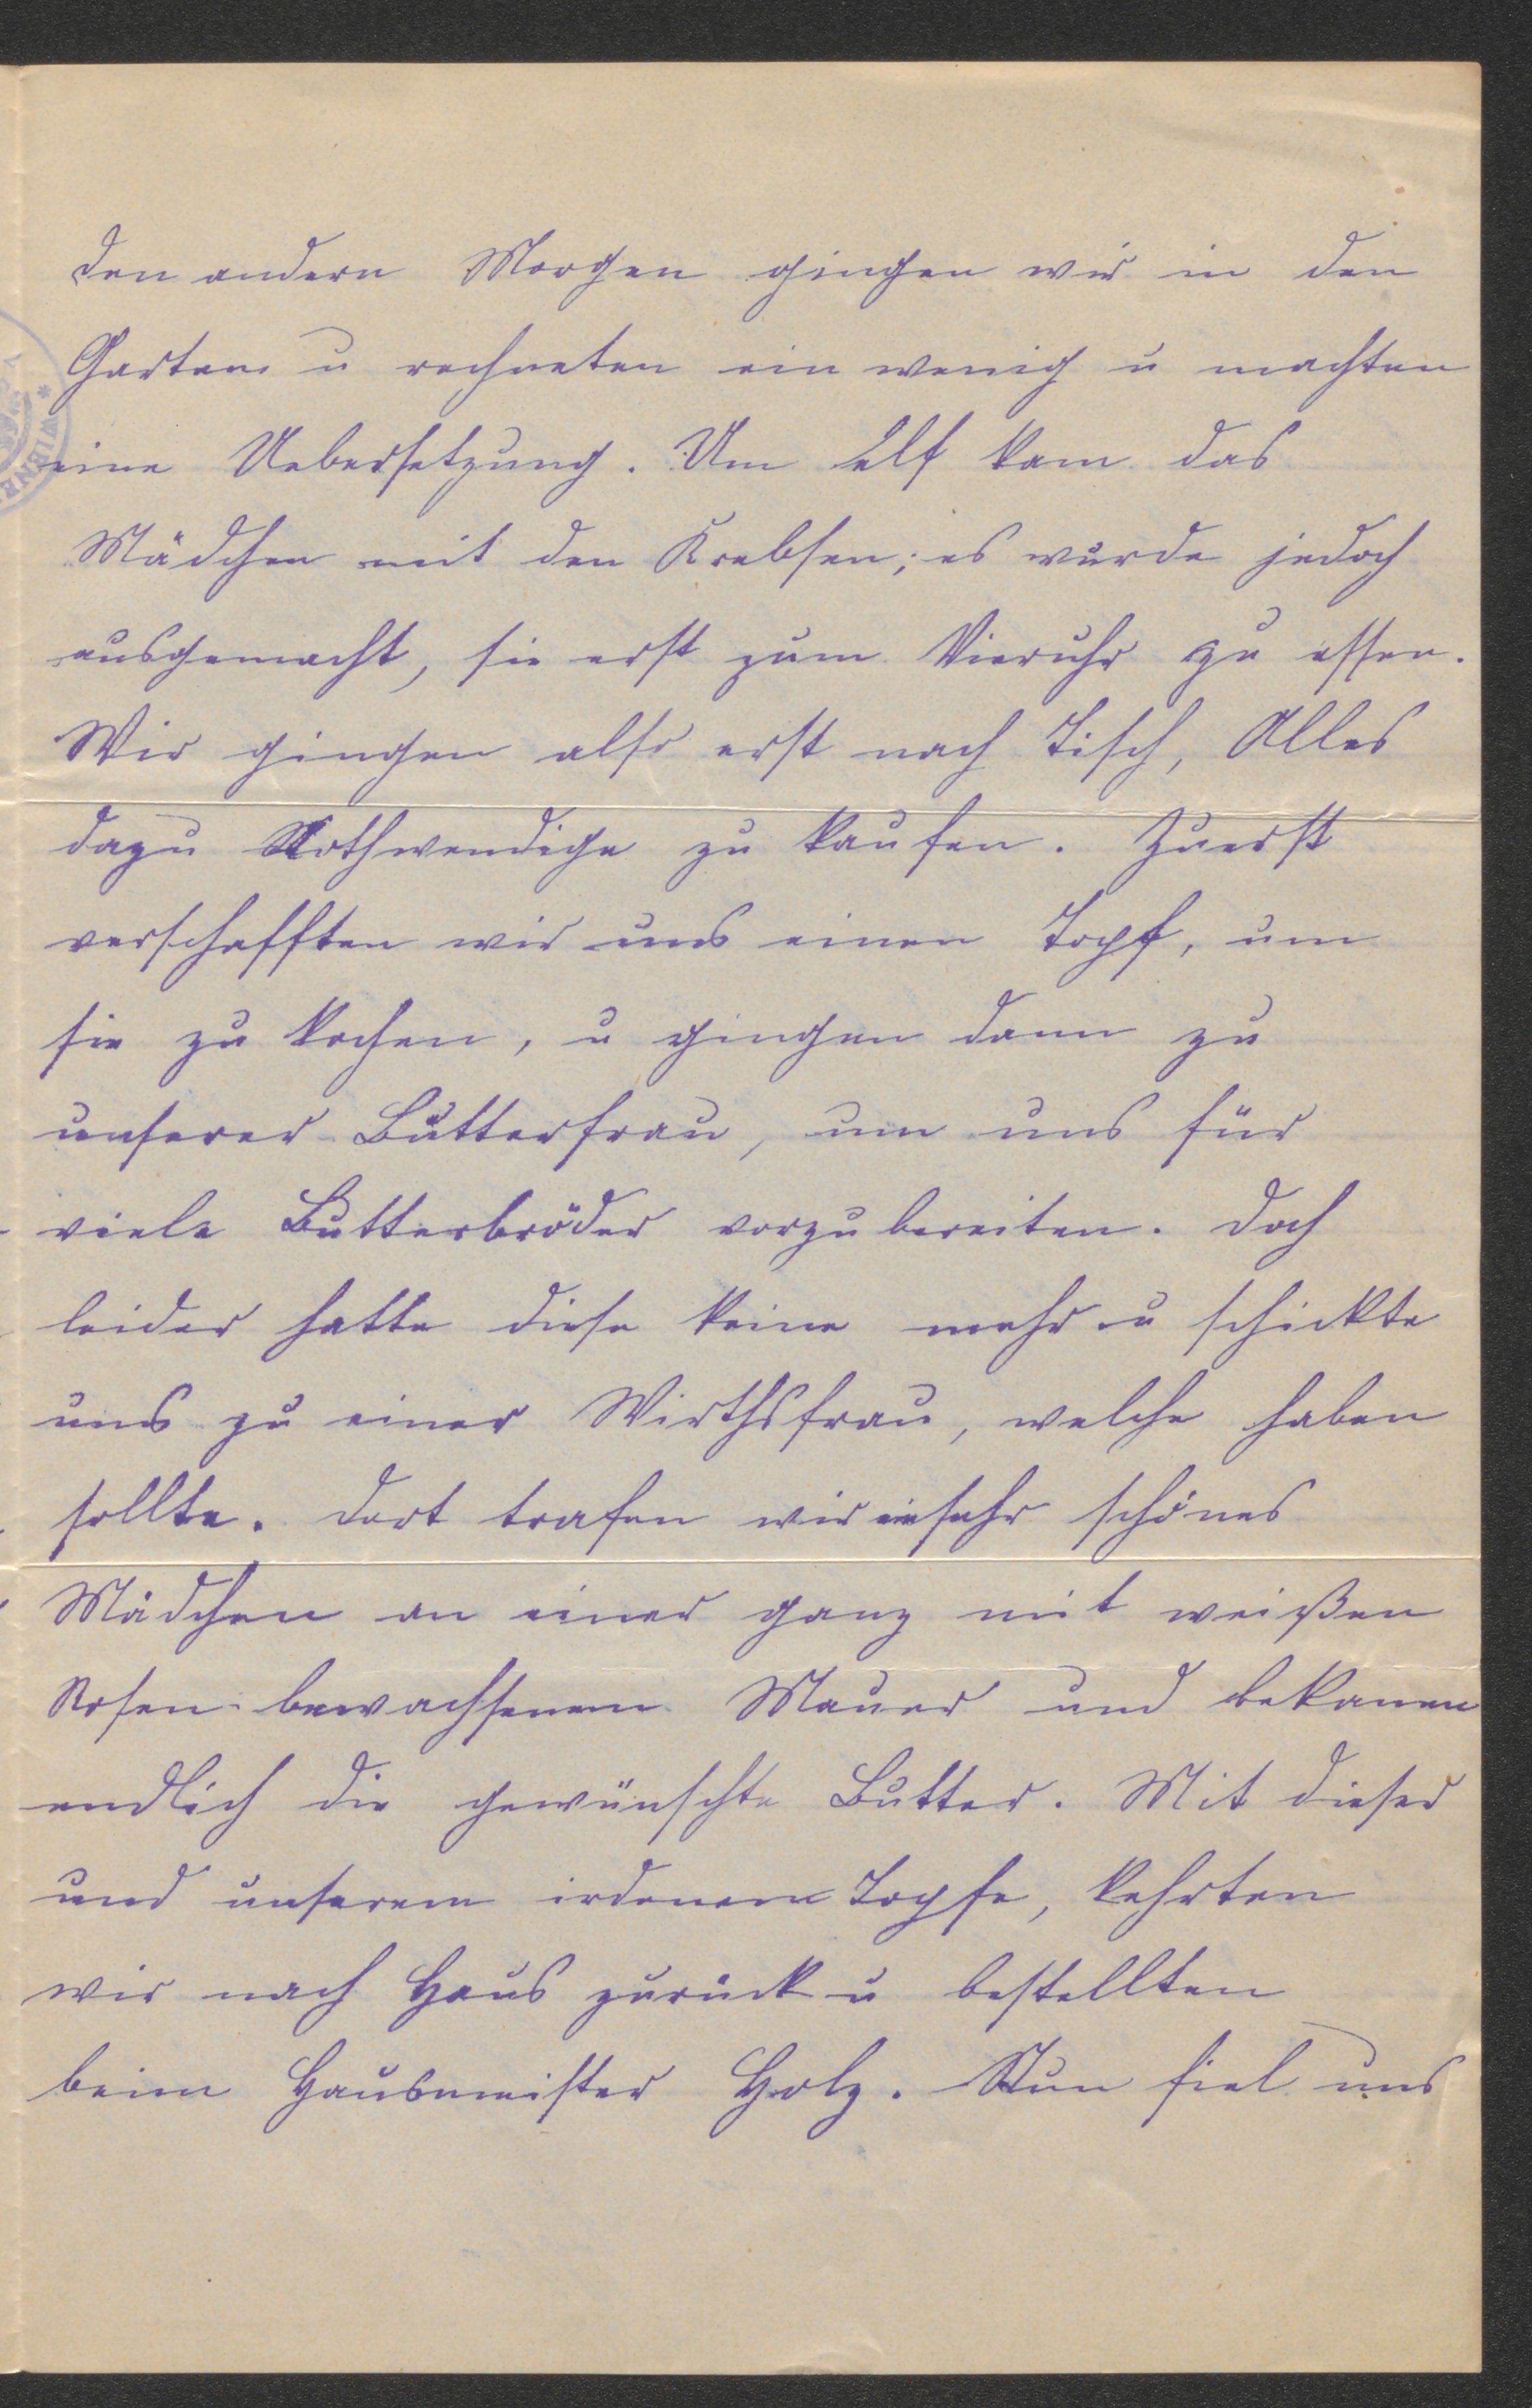 den andern Morgen gingen wir in den
Garten u rechneten ein wenig u machten
eine Uebersetzung. Um Elf kam das
Mädchen mit den Krebsen; es wurde jedoch
ausgemacht, sie erst zum Vieruhr zu essen.
Wir gingen also erst nach Tisch, Alles
dazu Nothwendige zu kaufen. Zuerst
verschafften wir uns einen Topf, um
sie zu kochen, u gingen dann zu
unserer Butterfrau, um uns für
viele Butterbröder vorzubereiten. Doch
leider hatte diese keine mehr u schickte
uns zu einer Wirthsfrau, welche haben
sollte. Dort trafen wir ein sehr schönes
Mädchen an einer ganz mit weißen
Rosen bewachsenen Mauer und bekamen
endlich die gewünschte Butter. Mit dieser
und unserem irdenem Topfe, kehrten
wir nach Haus zurück u bestellten
beim Hausmeister Holz. Nun fiel uns